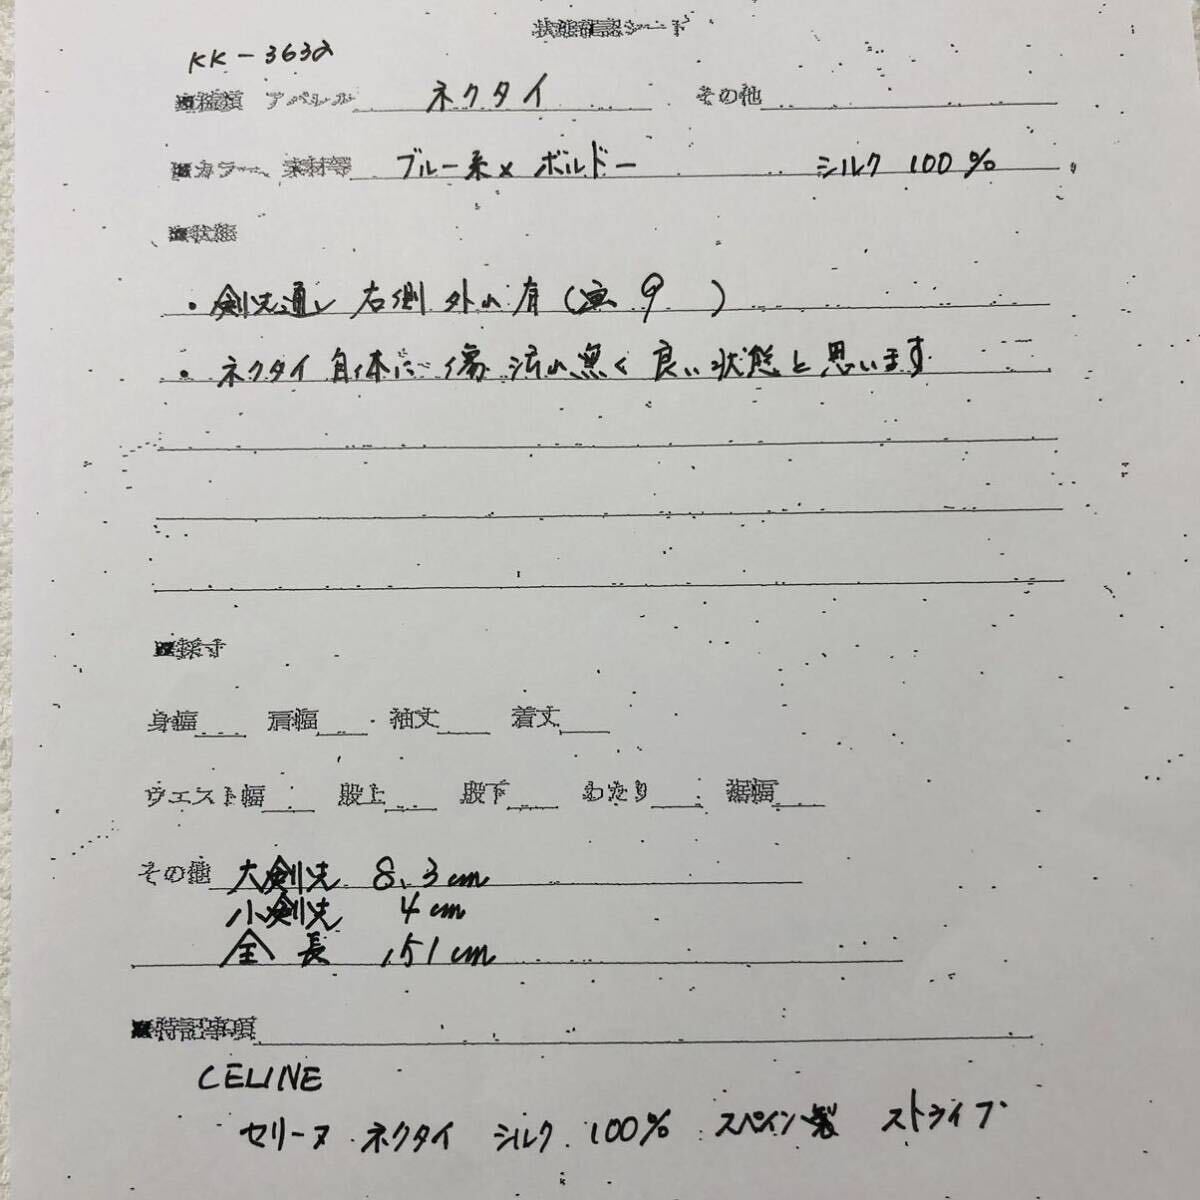 状態確認シート
KK-3632
■種類 アパレル ネクタイ その他
■カラー、素材等 ブルー系×ボルドー シルク 100%
■状態
・剣先通し 右側 外れ有(画9 )
・ネクタイ自体に傷 汚れ無く良い状態と思います
■採寸
身幅 肩幅 袖丈 着丈
ウエスト幅 股上 股下 わたり 裾幅
その他 大剣先 8.3cm
小剣先 4cm
全長 151cm
■特記事項
CELINE
セリーヌ ネクタイ シルク 100% スペイン製 ストライプ